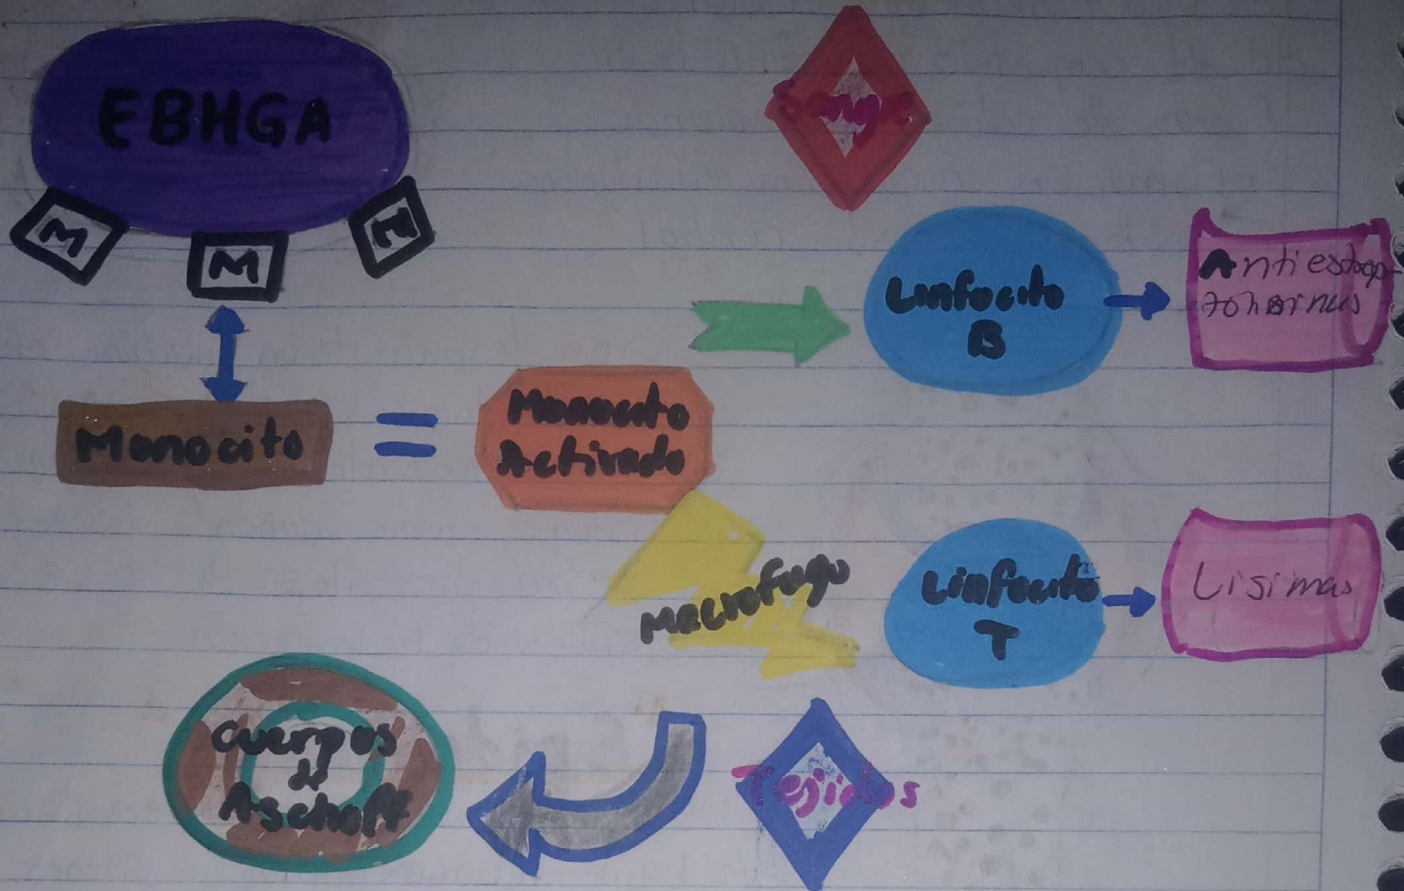 EBHGA
M
M
M
Sangre
Linfocito
B
Monocito
Monocito
Activado
Macrofago
Linfocito
T
Lisimas
Cuerpos
d
Aschoff
Tejidos